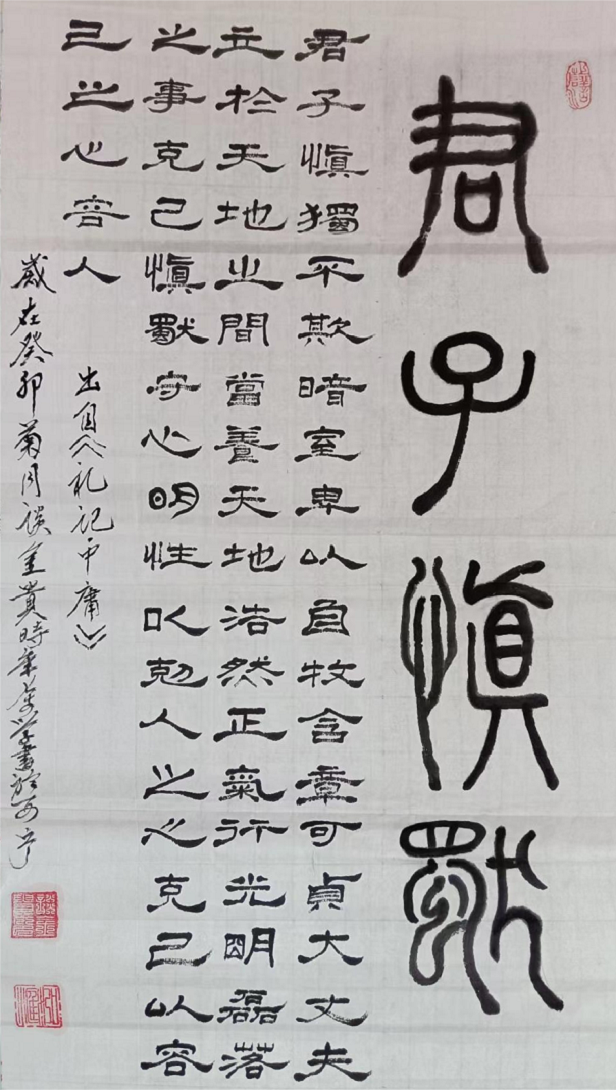 君子慎獨
君子慎獨不欺暗室卑以自牧含章可貞大丈夫
立於天地之間當養天地浩然正氣行光明磊落
之事克己慎獨守心明性以克人之心克己以容
己之心容人
出自《礼記中庸》
歲在癸卯菊月談金貴時年学書於西宁